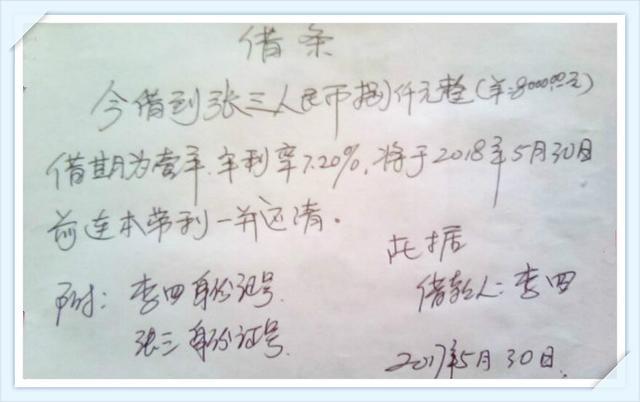 借条
今借到张三人民币捌仟元整(¥:8000.00元)
借期为壹年.年利率7.20%,将于2018年5月30日
前连本带利一并还清。
此据
附:李四身份证号
借款人:李四
张三身份证号
2017年5月30日